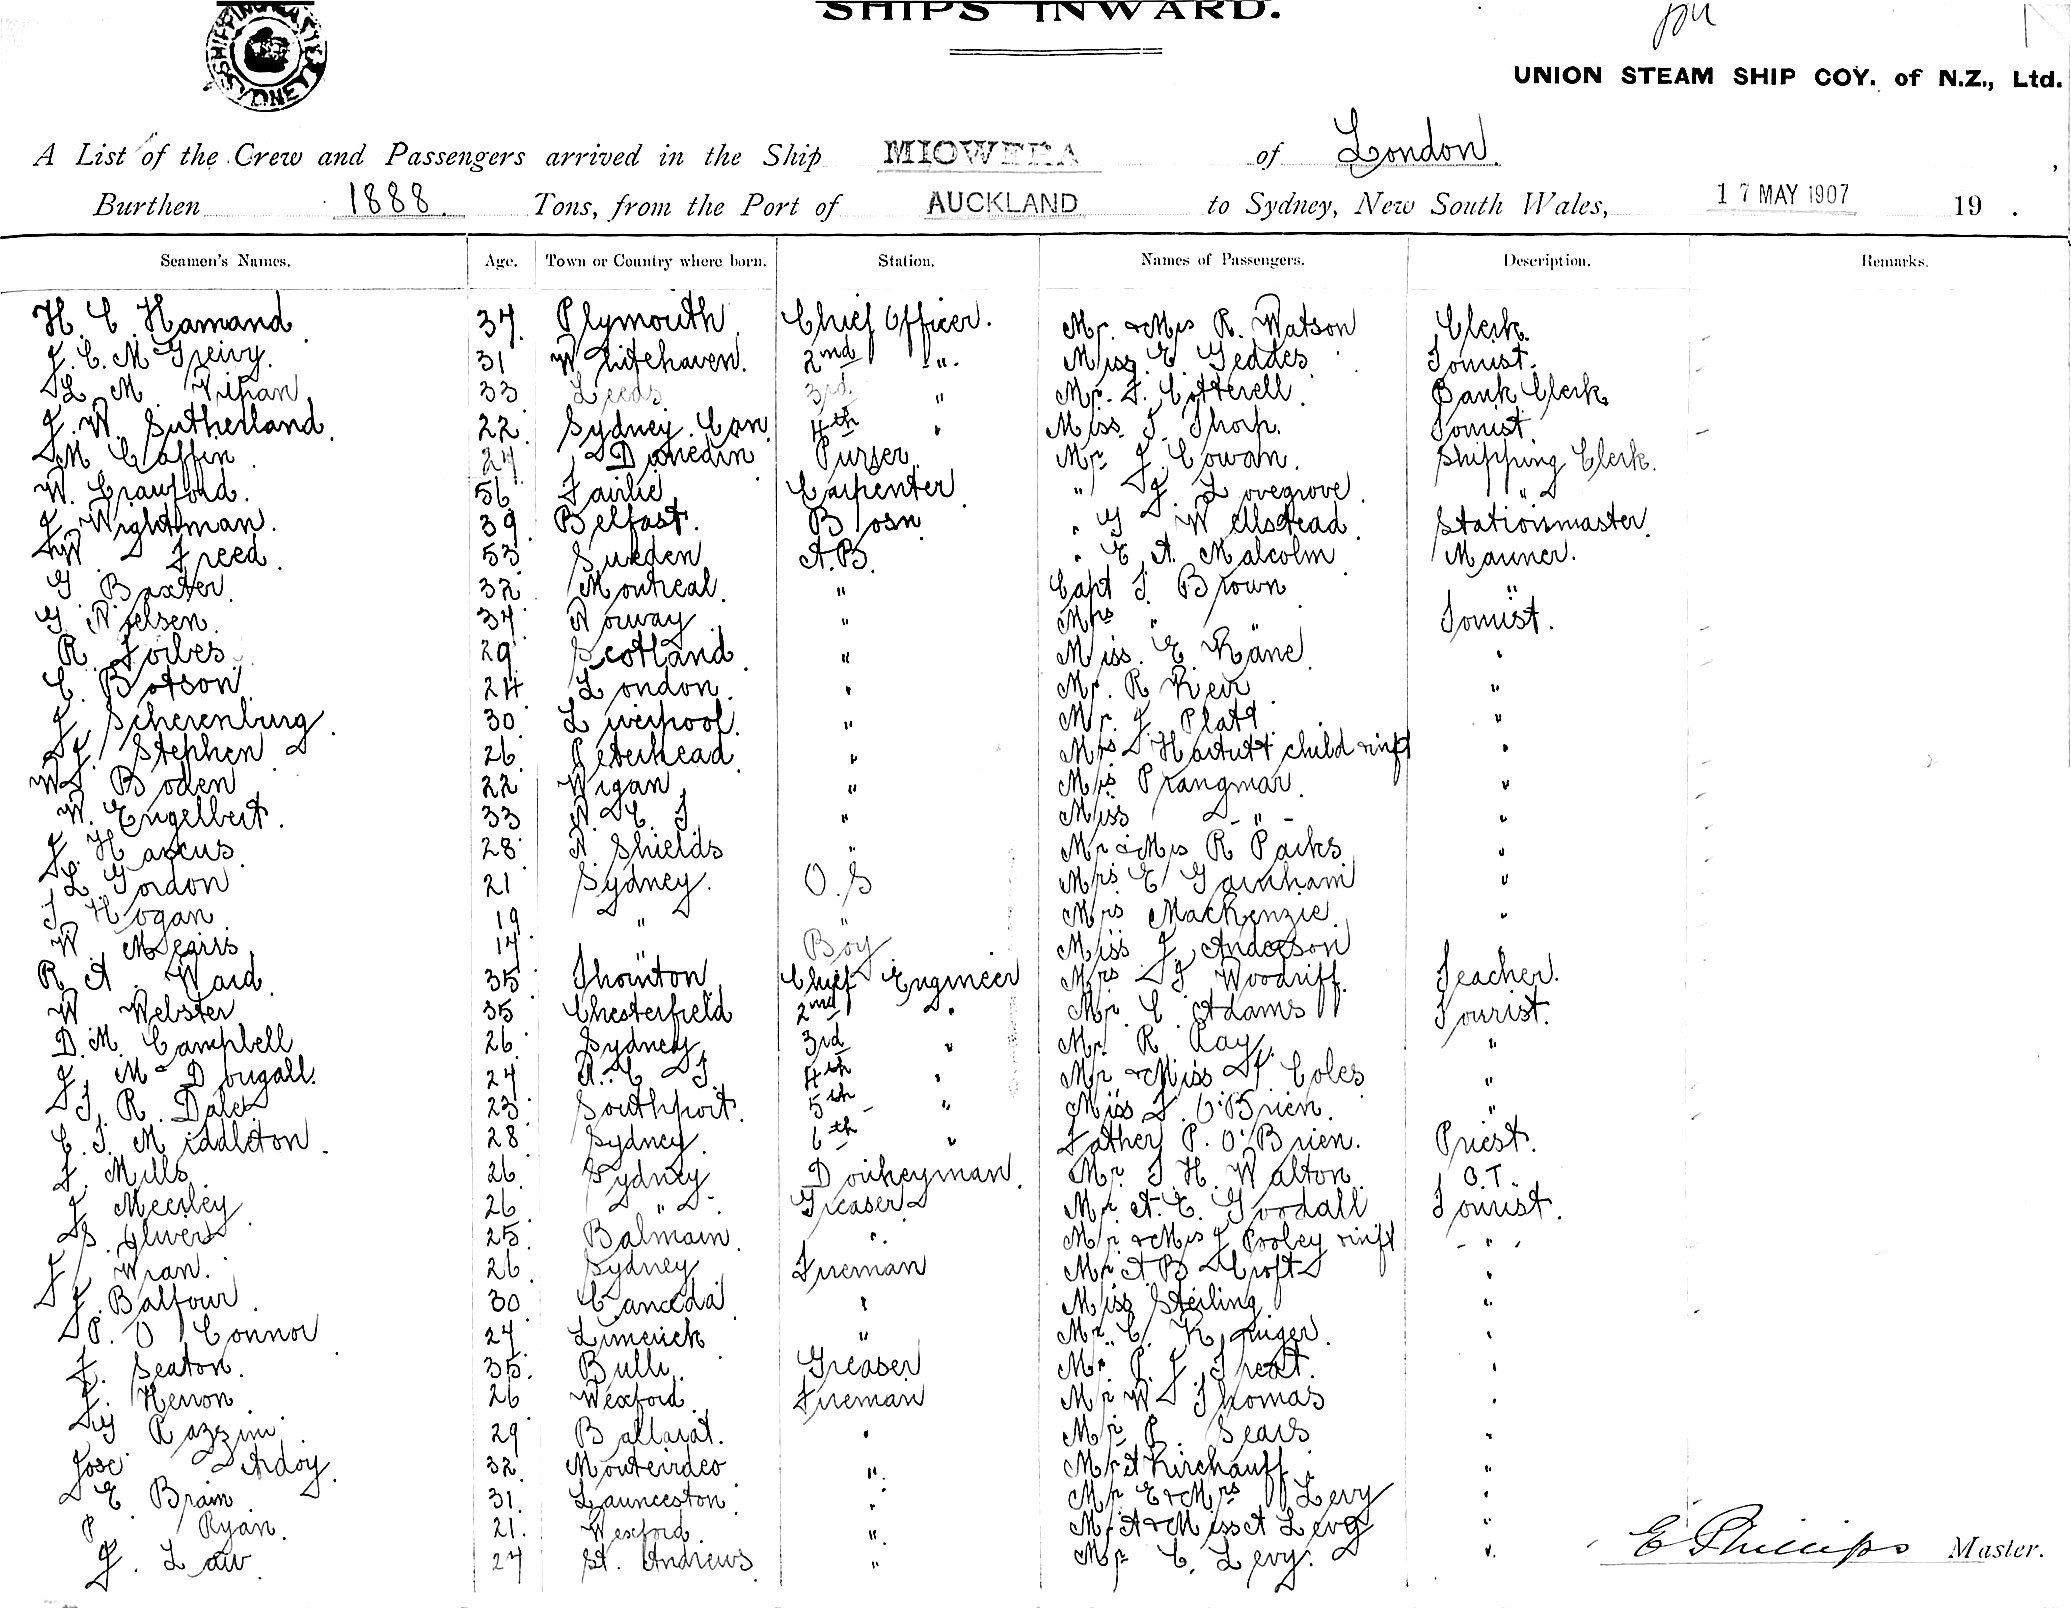 SHIPS INWARD.
UNION STEAM SHIP COY. of N.Z., Ltd.
A List of the Crew and Passengers arrived in the Ship MIOWERA of London.
Burthen 1888. Tons, from the Port of AUCKLAND to Sydney, New South Wales, 17 MAY 1907 19 .
Seamen's Names. Age. Town or Country where born. Station. Names of Passengers. Description. Remarks.
H. C. Hamand 34 Plymouth Chief Officer. Mr. & Mrs R. Watson Clerk.
J. C. McGreivy. 31 Whitehaven. 2nd ". Miss E. Geddes Tourist.
L. M. 33 Leeds 3rd " Mr. Cotterell Bank Clerk
J. W. Sutherland. 22 Sydney. Can 4th " Miss J. Thorp. Tourist.
M Caffin 24 Dunedin Purser. Mr J. Cowan. Shipping Clerk.
W. Crawford. 56 Fairlie Carpenter " J. Lovegrove. "
J. Wightman. 39 Belfast. Bosn " G. Wellstead. Stationmaster.
W. Freed. 53 Sweden A.B. " E. A. Malcolm Mariner.
G Baxter. 32 Montreal. " Capt J. Brown "
G. Nielsen. 34 Norway " Mrs " " Tourist.
R. Forbes. 29 Scotland " Miss. E. Kane "
C. Botson 24 London. " Mr. R Keir "
J. Scherenburg. 30 Liverpool. " Mr. J. Platt "
J. Stephen 26 Peterhead " Mrs child & inft "
W. Boden 22 Wigan " Mrs Prangmar. "
W. Engelbert. 33 N. C. T " Miss - " - "
J. Harcus 28 N. Shields " Mr & Mrs R Parks "
L. Gordon 21 Sydney. O.S Mrs E Gainham "
J Hogan 19 " " Mrs MacKenzie. "
W. 14 " Boy Miss J. Anderson
R A. Ward. 35 Thornton Chief Engineer Mrs J Woodriff. Teacher.
W Webster 35 Chesterfield 2nd " Mr. C. Adams Tourist.
D. M. Campbell 26 Sydney 3rd " Mr. R Ray. "
J. McDougall. 24 N. C. T. 4th " Mr & Miss J. Coles "
J. R. Dale 23 Southport. 5th " Miss J. O'Brien. "
C. J. Middleton. 28 Sydney. 6th " Father P. O'Brien. Priest.
J. Mills. 26 Sydney Donkeyman. Mr. J. H. Walton. C.T.
J. Meerley 26 " Greaser Mr A. E. Goodall Tourist.
S. Oliver 25 Balmain " Mr. & Mrs J Pooley & inft "
J. Wran. 26 Sydney Fireman Mr A B Croft "
J. Balfour. 30 Canada " Miss Steiling "
P. O Connor 24 Limerick " Mr. C. Kruiger. "
F. Seaton. 35. Bulli. Greaser Mr. P. J. Treat. "
J. Heron. 26 Wexford. Fireman Mr W. Thomas "
G Razzini 29 Ballarat. " Mr P. Sears "
Jose Ardoy. 32 Monteirdeo " Mr A Kirchauff. "
E. Brain 31. Launceston. " Mr E & Mrs Levy "
P Ryan. 21. Wexford. " Mr A & Miss A Levy "
J. Law 24 St. Andrews. " Mr C. Levy. "
E Phillips Master.